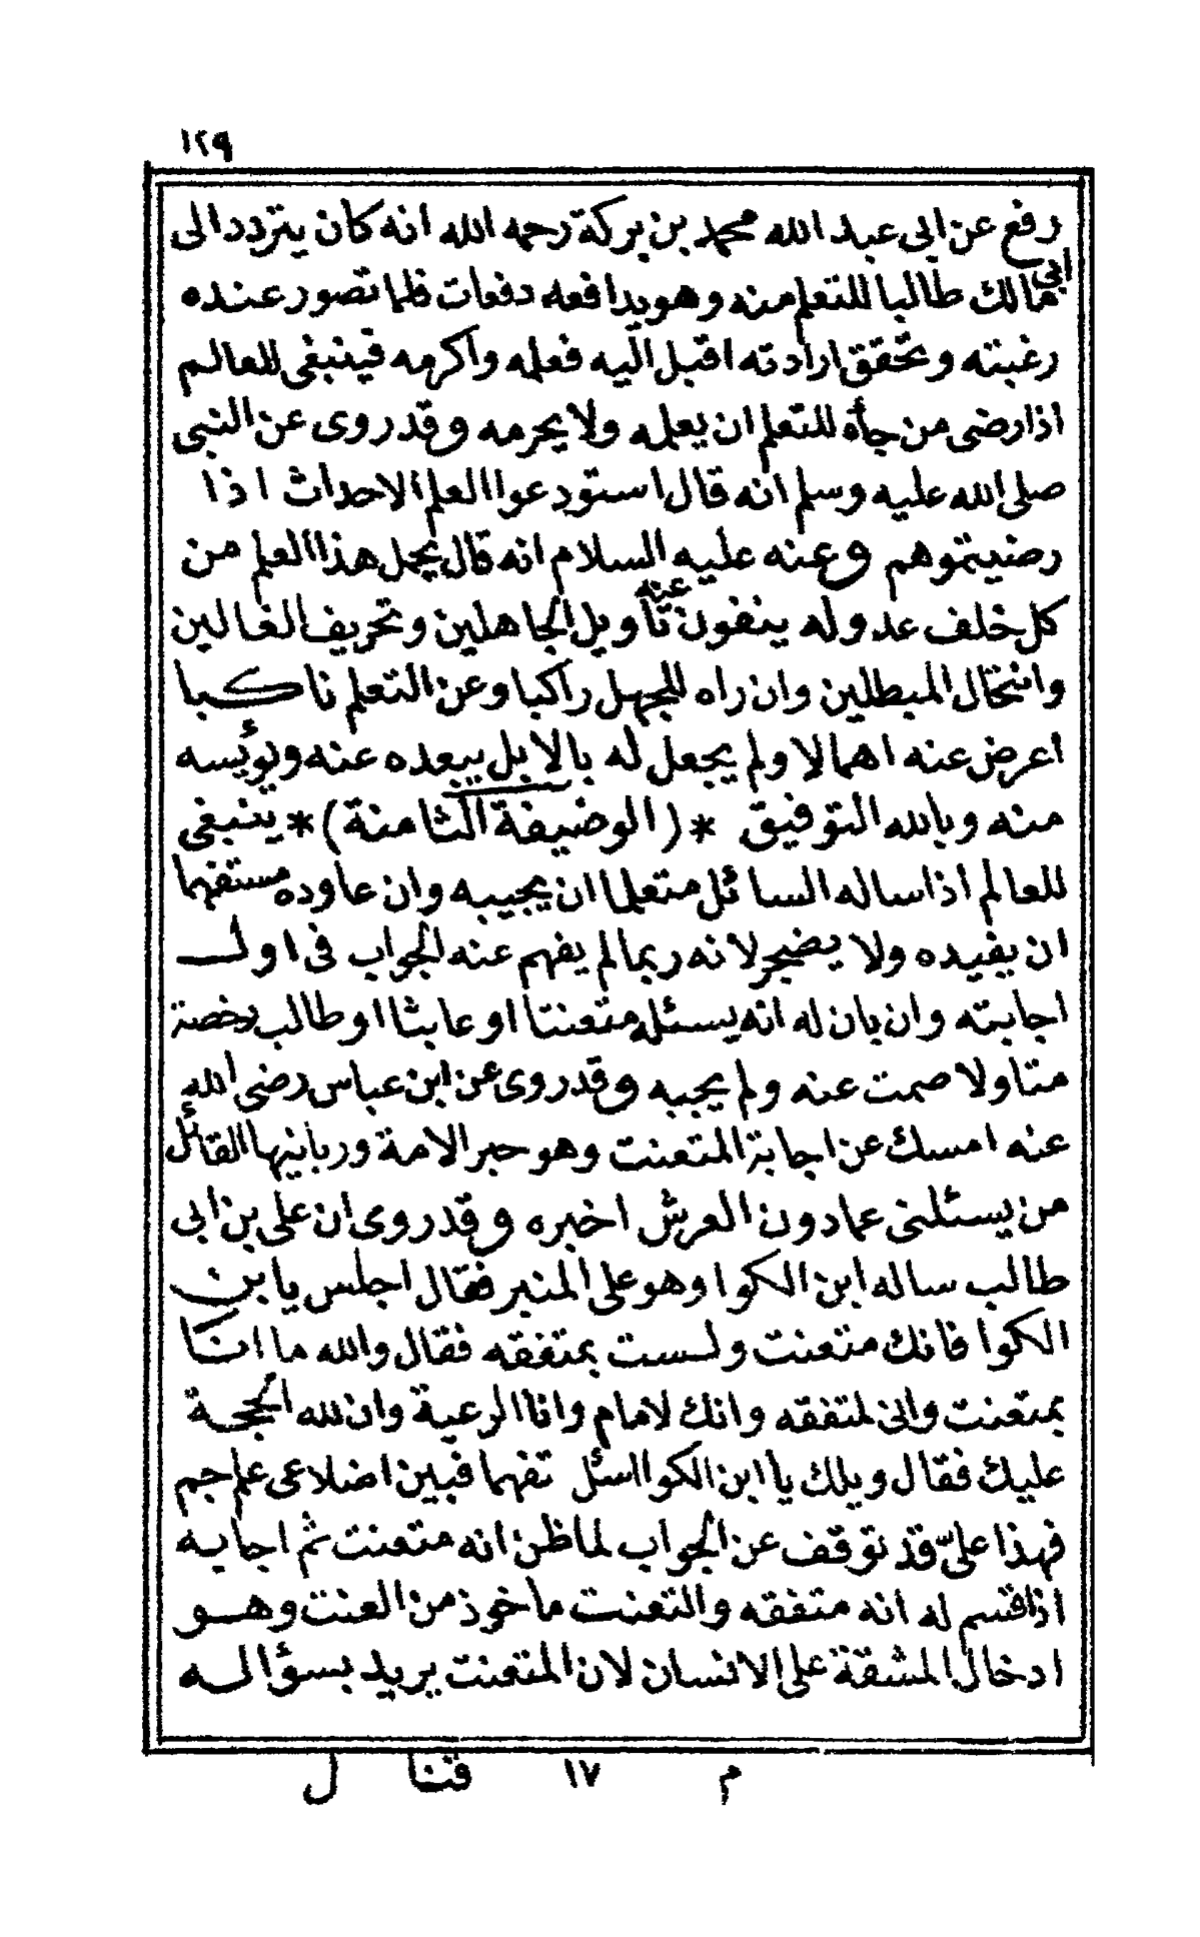 ١٢٩
رفع عن ابى عبد الله محمد بن بركة رحمه الله انه كان يتردد الى
ابي مالك طالبا للتعلم منه وهو يدافعه دفعات فلما تصور عنده
رغبته وتحقق ارادته اقبل اليه فعلمه واكرمه فينبغى للعالم
اذا رضى من جأه للتعلم ان يعلمه ولا يحرمه وقد روى عن النبى
صلى الله عليه وسلم انه قال استودعوا العلم الاحداث اذا
رضيتموهم وعنه عليه السلام انه قال يحمل هذا العلم من
كل خلف عدوله ينفون عنه تأويل الجاهلين وتحريف الغالين
وانتحال المبطلين وان راه للجهل راكبا وعن التعلم ناكبا
اعرض عنه اهمالا ولم يجعل له بالا بل يبعده عنه ويؤيسه
منه وبالله التوفيق *(الوضيفة الثامنة)* ينبغى
للعالم اذا ساله السائل متعلما ان يجيبه وان عاوده مستفهما
ان يفيده ولا يضجر لانه ربما لم يفهم عنه الجواب فى اول
اجابته وان بان له انه يسئله متعنتا او عابثا او طالب رخصة
متاولا صمت عنه ولم يجبه وقد روى عن ابن عباس رضى الله
عنه امسك عن اجابة المتعنت وهو حبر الامة وربانيها القائل
من يسئلنى عمادون العرش اخبره وقد روى ان على بن ابى
طالب ساله ابن الكوا وهو على المنبر فقال اجلس يا بن
الكوا فانك متعنت ولست بمتفقه فقال والله ما انا
بمتعنت وانى لمتفقه وانك لامام وانا الرعية وان لله الحجة
عليك فقال ويلك يا ابن الكوا اسئل تفهما فبين اضلاعى علم جم
فهذا علىّ قد توقف عن الجواب لما ظن انه متعنت ثم اجابه
اذا قسم له انه متفقه والتعنت ماخوذ من العنت وهو
ادخال المشقة على الانسان لان المتعنت يريد بسؤاله
م ١٧ قنا ل